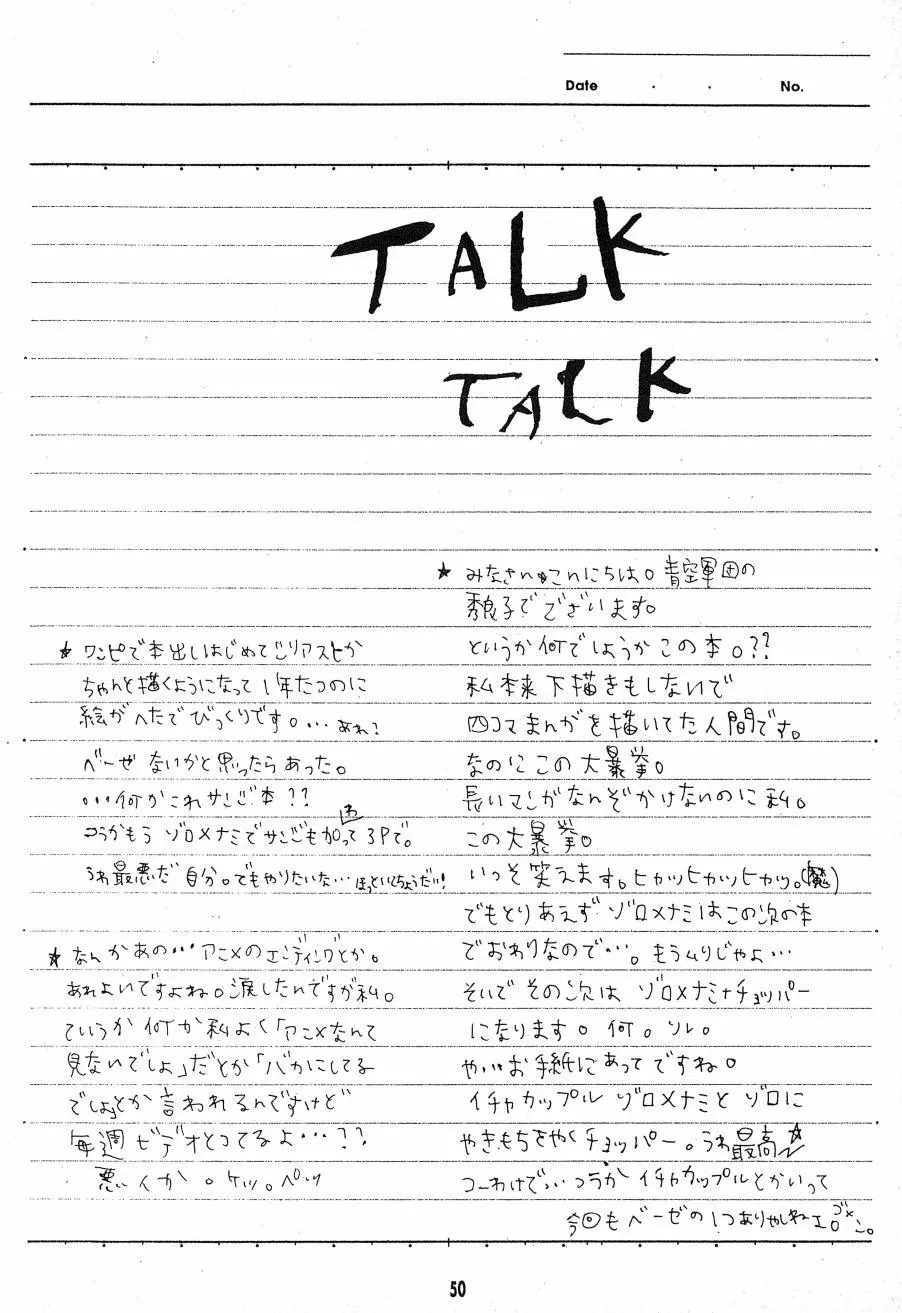 Date ・ ・ No.
TALK
TALK
★ みなさん こんにちは。青空軍団の
秀良子でございます。
というか何でしょうか この本。??
私本来下描きもしないで
四コマまんがを描いてた人間です。
なのにこの大暴挙。
長いマンガなんぞかけないのに私。
この大暴挙。
いっそ笑えます。ヒカッヒカッヒカッ。(魔)
でもとりあえず ゾロ×ナミはこの次の本
でおわりなので…。もうムリじゃよ…
そいで その次は ゾロ×ナミ+チョッパー
になります。何。ソレ。
や…お手紙にあってですね。
イチャカップル ゾロ×ナミと ゾロに
やきもちをやくチョッパー。うわ最高☆
つーわけで… つうか イチャカップルとかいって
今回もベーゼの1つありゃしねェ。ゴメン。
★ ワンピで本出しはじめて
ちゃんと描くようになって 1年たつのに
絵がへたでびっくりです。… あれ?
ベーゼ ないかと思ったらあった。
…何かこれサンジ本??
つうかもう ゾロ×ナミでサンジも加わって3Pで。
うわ最悪だ 自分。でもやりたいな… ほっといてちょうだい!
★ なんかあの… アニメのエンディングとか。
あれよいですよね。涙したんですが私。
ていうか 何か私よく「アニメなんて
見ないでしょ」だとか「バカにしてる
でしょ」とか言われるんですけど
毎週ビデオとってるよ…??
悪いか。ケッ。ペッ
50